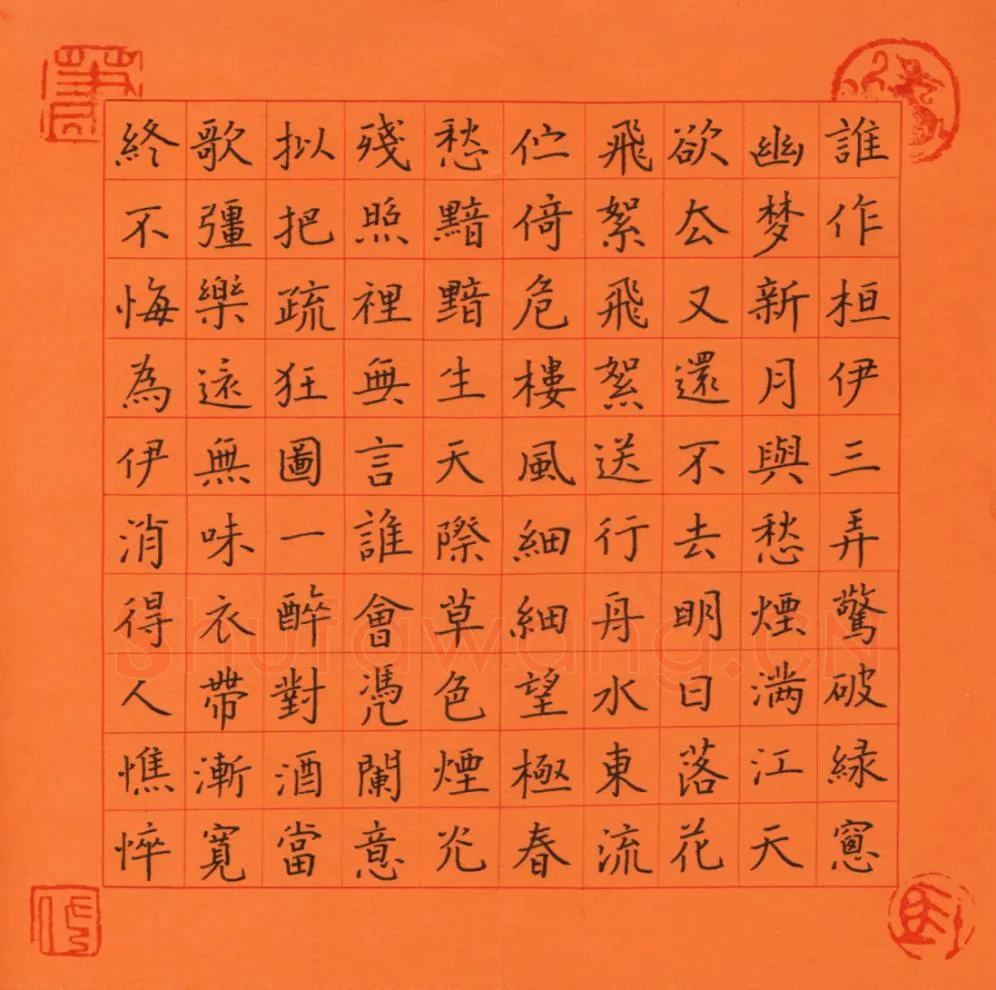 誰作桓伊三弄驚破緑窻
幽梦新月與愁煙满江天
欲厺又還不去明日落花
飛絮飛絮送行舟水東流
伫倚危樓風細細望極春
愁黯黯生天際草色煙光
殘照裡無言誰會凴闌意
拟把疏狂圖一醉對酒當
歌彊樂還無味衣帶漸寬
終不悔為伊消得人憔悴
shufawang.CN